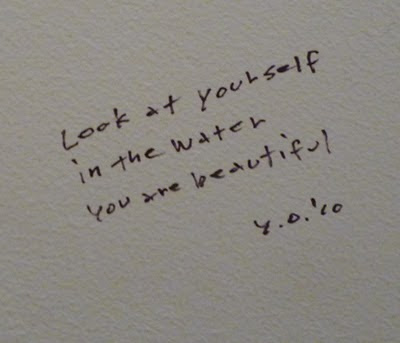 Look at yourself
in the water
you are beautiful
y.o.'10